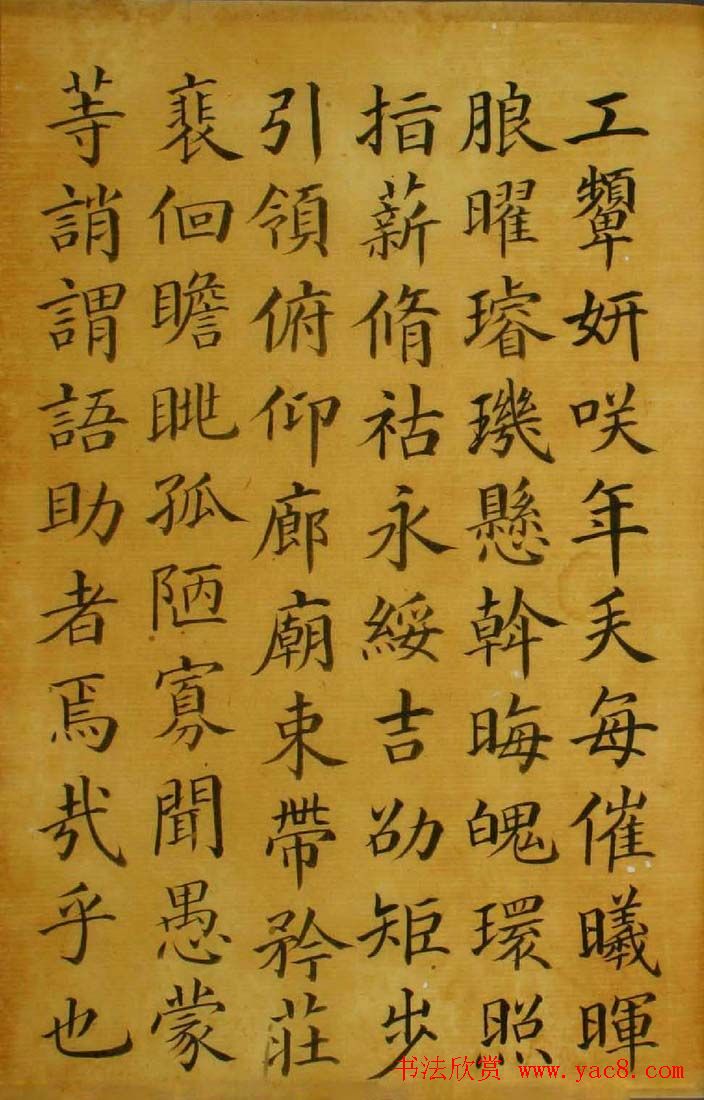 工顰妍咲年矢每催曦暉
朖曜璿璣懸斡晦魄環照
指薪脩祜永綏吉劭矩步
引領俯仰廊廟束帶矜莊
裴佪瞻眺孤陋寡聞愚蒙
等誚謂語助者焉哉乎也
书法欣赏 www.yac8.com